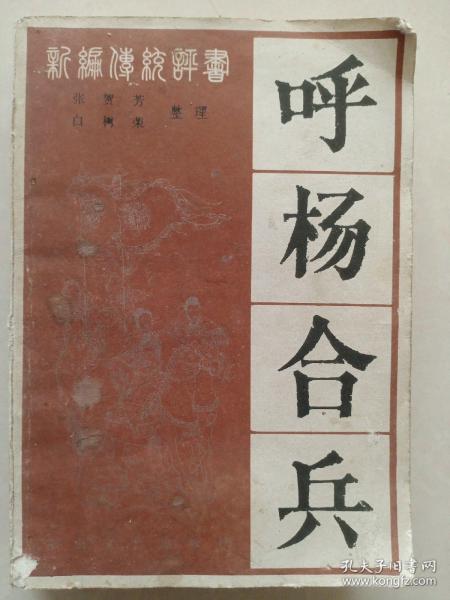 新編傳統評書
张贺芳
白树荣 整理
呼杨合兵
孔夫子旧书网
www.kongfz.com